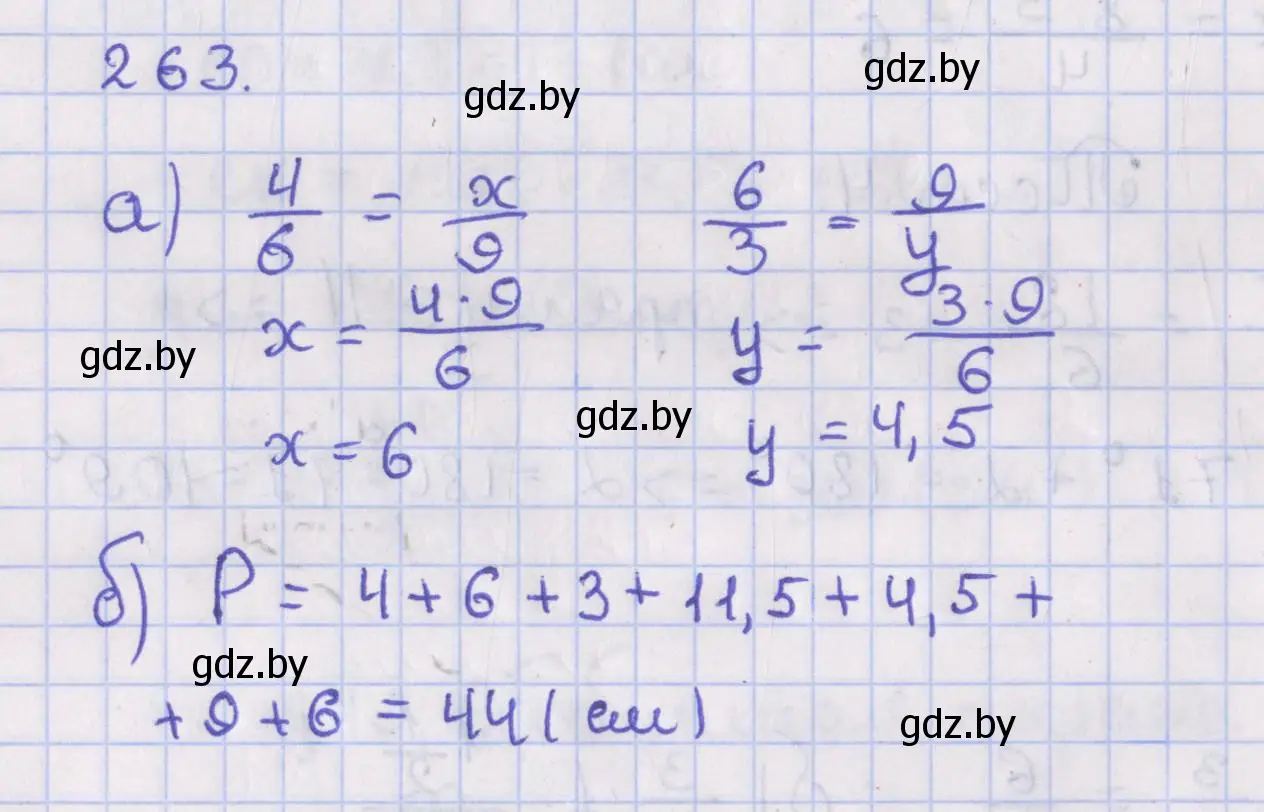 263.
gdz.by
gdz.by
а) 4/6 = x/9
6/3 = 9/y
x = 4·9/6
y = 3·9/6
gdz.by
gdz.by
x = 6
y = 4,5
б) P = 4 + 6 + 3 + 11,5 + 4,5 +
gdz.by
+ 9 + 6 = 44 (см)
gdz.by